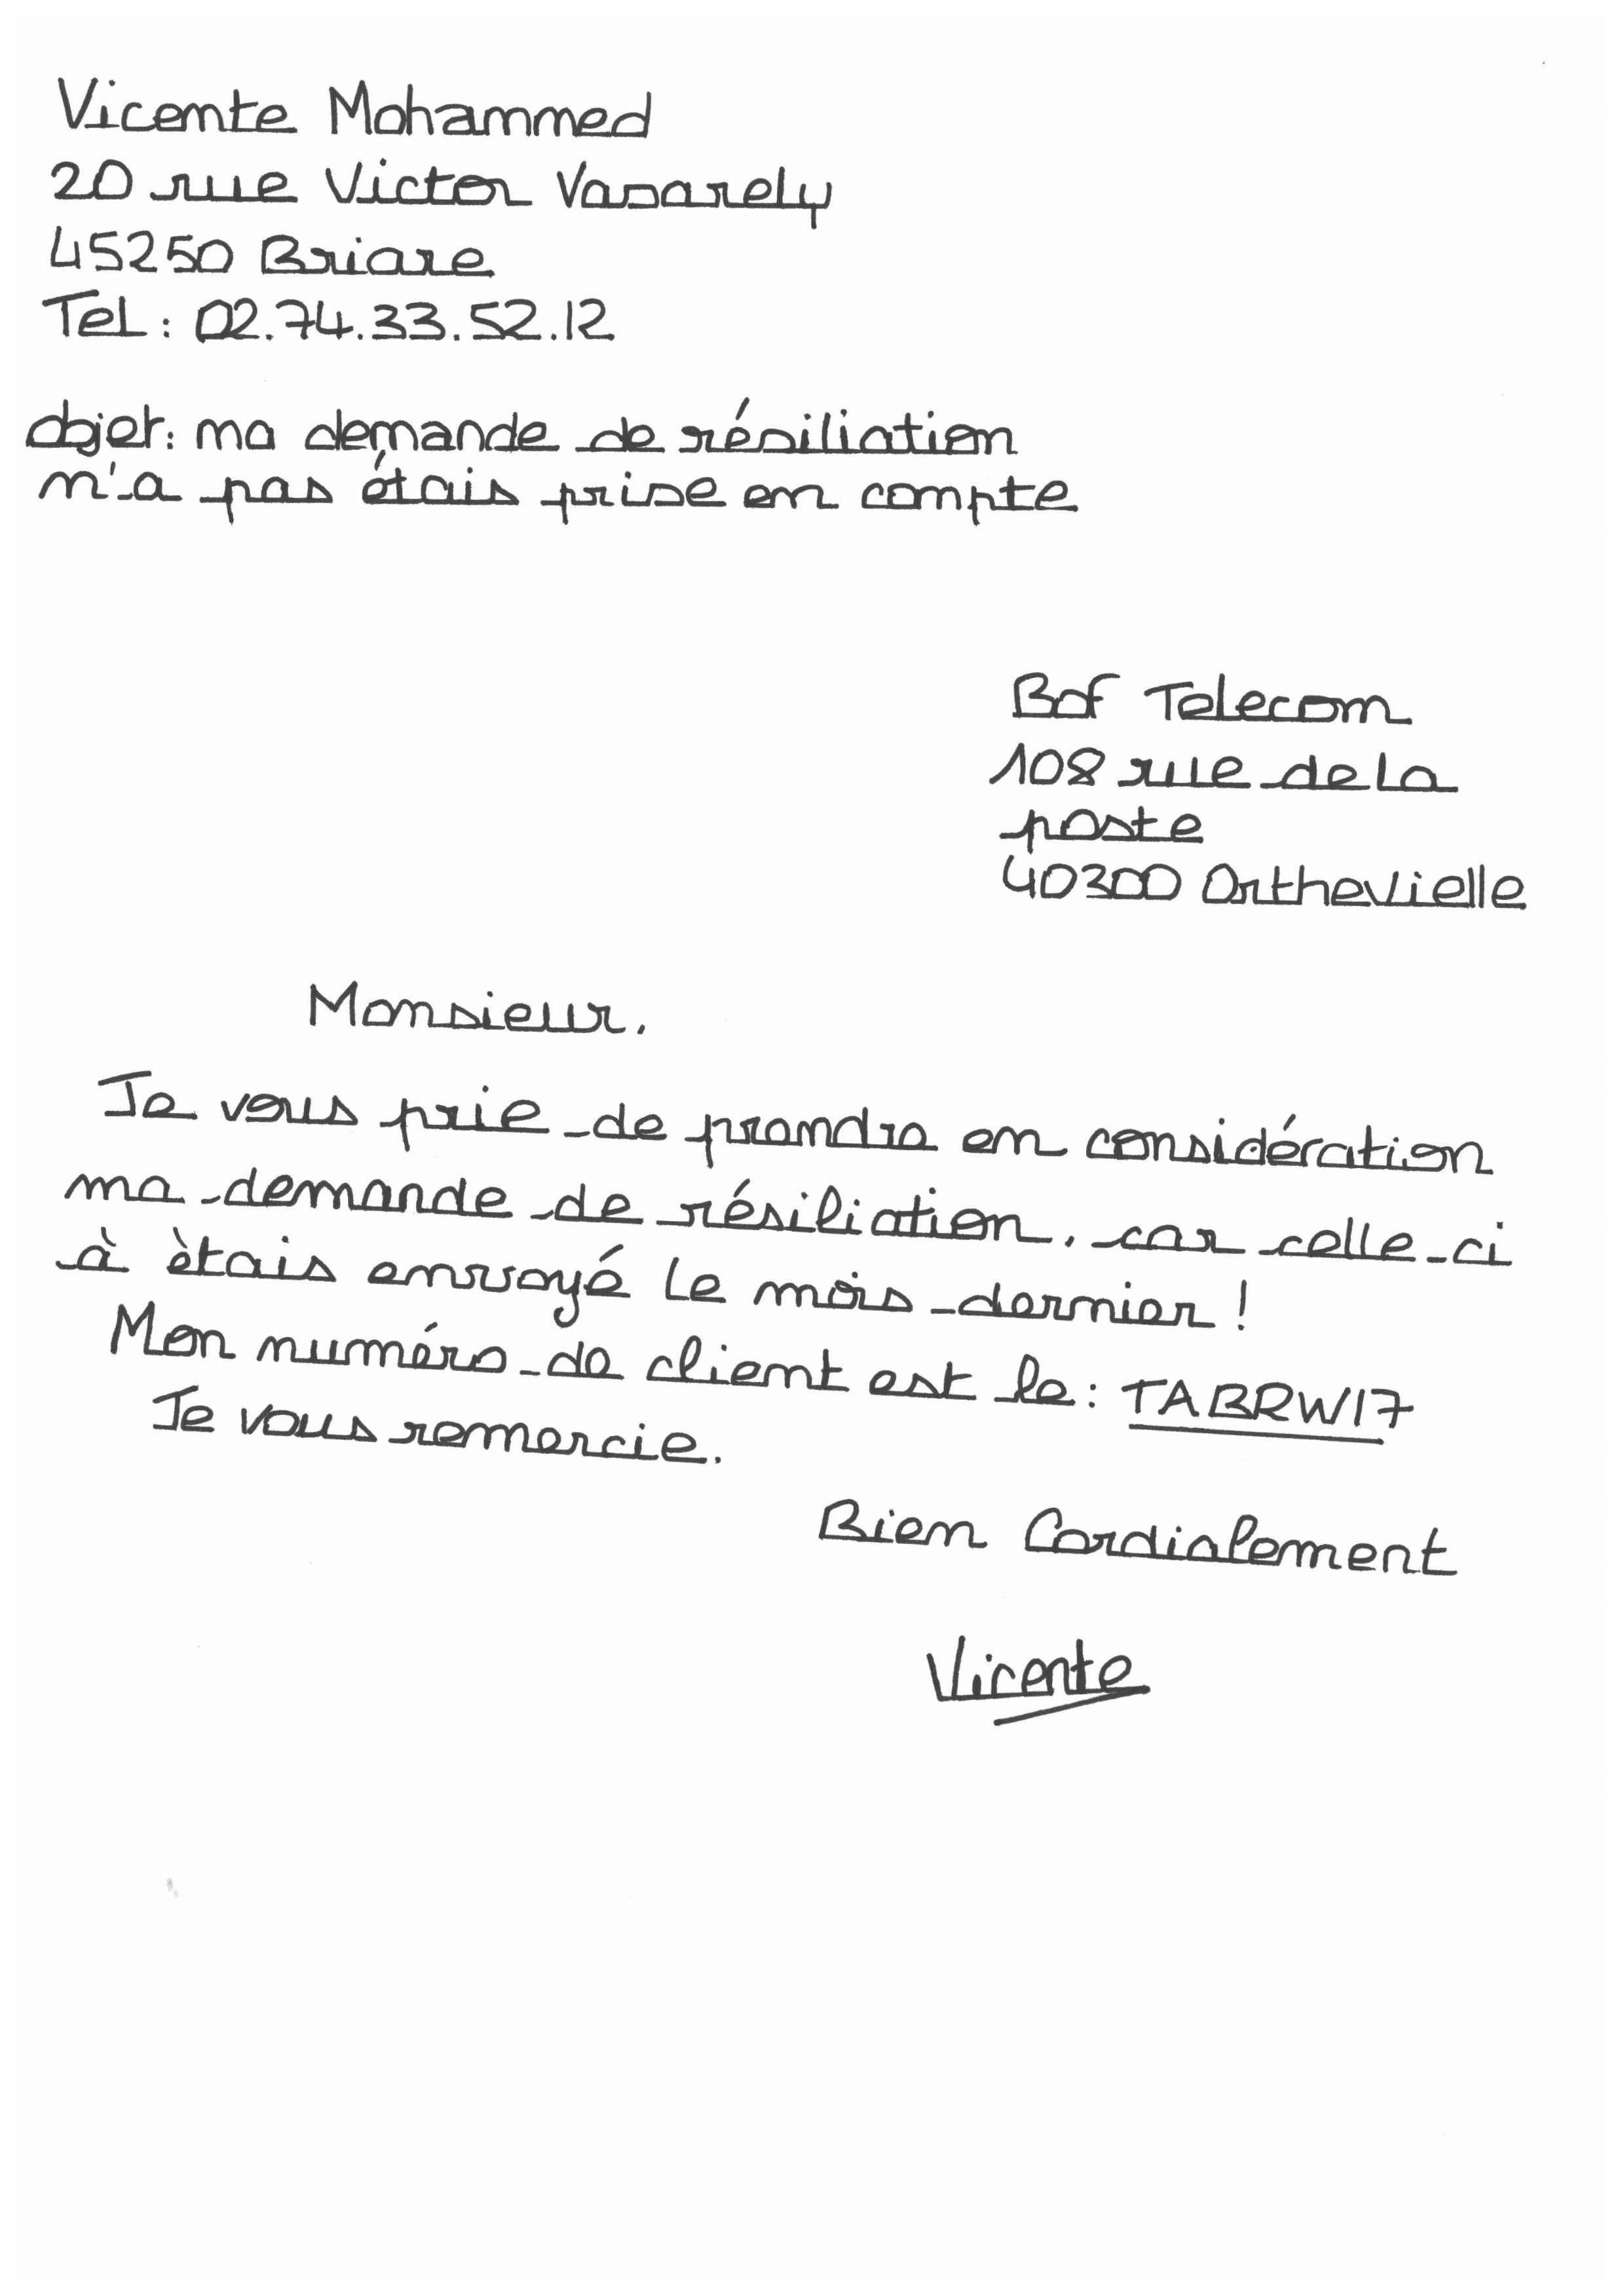 Vicente Mohammed
20 rue Victor Vasarely
45250 Briare
Tel : 02.74.33.52.12
objet : ma demande de résiliation
n'a pas étais prise en compte
Bof Telecom
108 rue de la
poste
40300 Orthevielle
Monsieur.
Je vous prie de prendre en considération
ma demande de résiliation, car celle-ci
à ètais envoyé le mois dernier !
Mon numéro de client est le : TABRW17
Je vous remercie.
Bien Cordialement
Vicente